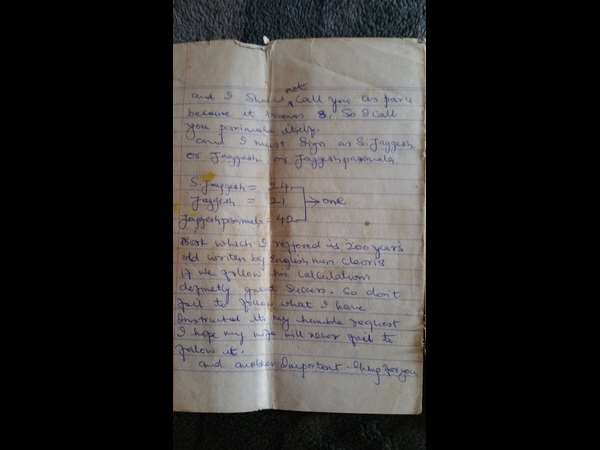 not
and I shall call you as pari
because it means 8, So I call
you parimala itself.
and I must sign as S. Jaggesh
or Jaggesh or Jaggeshparimala
S. Jaggesh = 24
Jaggesh = 21 → one
Jaggeshparimala = 40
Book which I reffered is 200 years
old written by English man
If we follow calculations
definetly great success. So don't
fail to follow what I have
instructed its my humble request
I hope my wife will never fail to
follow it.
and another Important thing for you